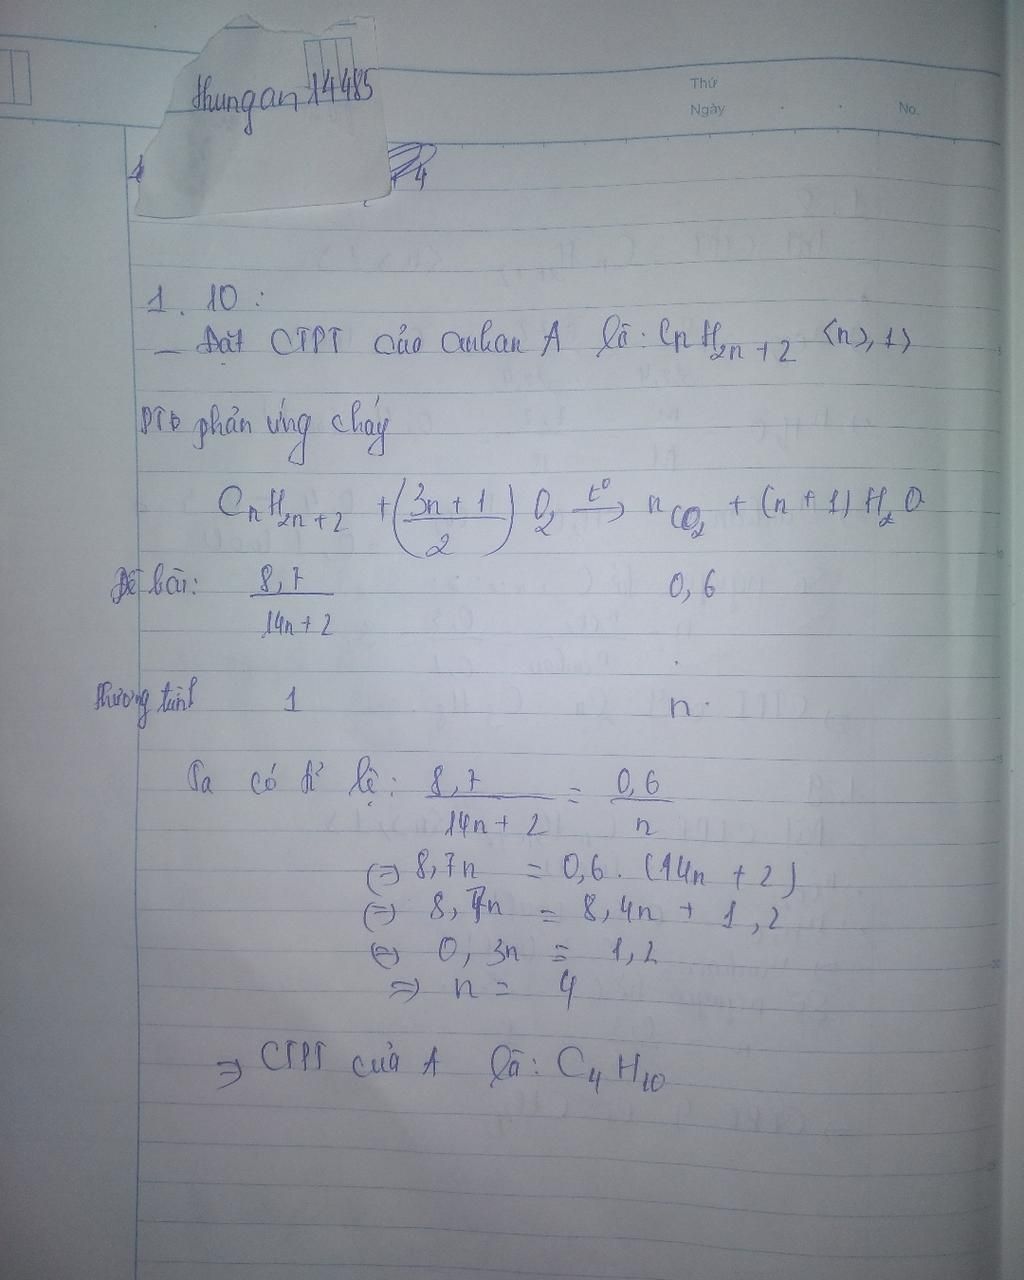 thungan 14485
Thứ
Ngày . . No.
4
1. 10:
- Đặt CTPT của ankan A là: CnH2n+2 (n≥1)
PTĐ phản ứng cháy
CnH2n+2 + (3n+1/2) O2 t° → nCO2 + (n+1) H2O
Đề bài: 8,7/14n+2 0,6
Phương trình 1 n
Ta có tỉ lệ: 8,7/14n+2 = 0,6/n
(=) 8,7n = 0,6. (14n + 2)
(=) 8,7n = 8,4n + 1,2
(=) 0,3n = 1,2
=> n = 4
=> CTPT của A là: C4H10